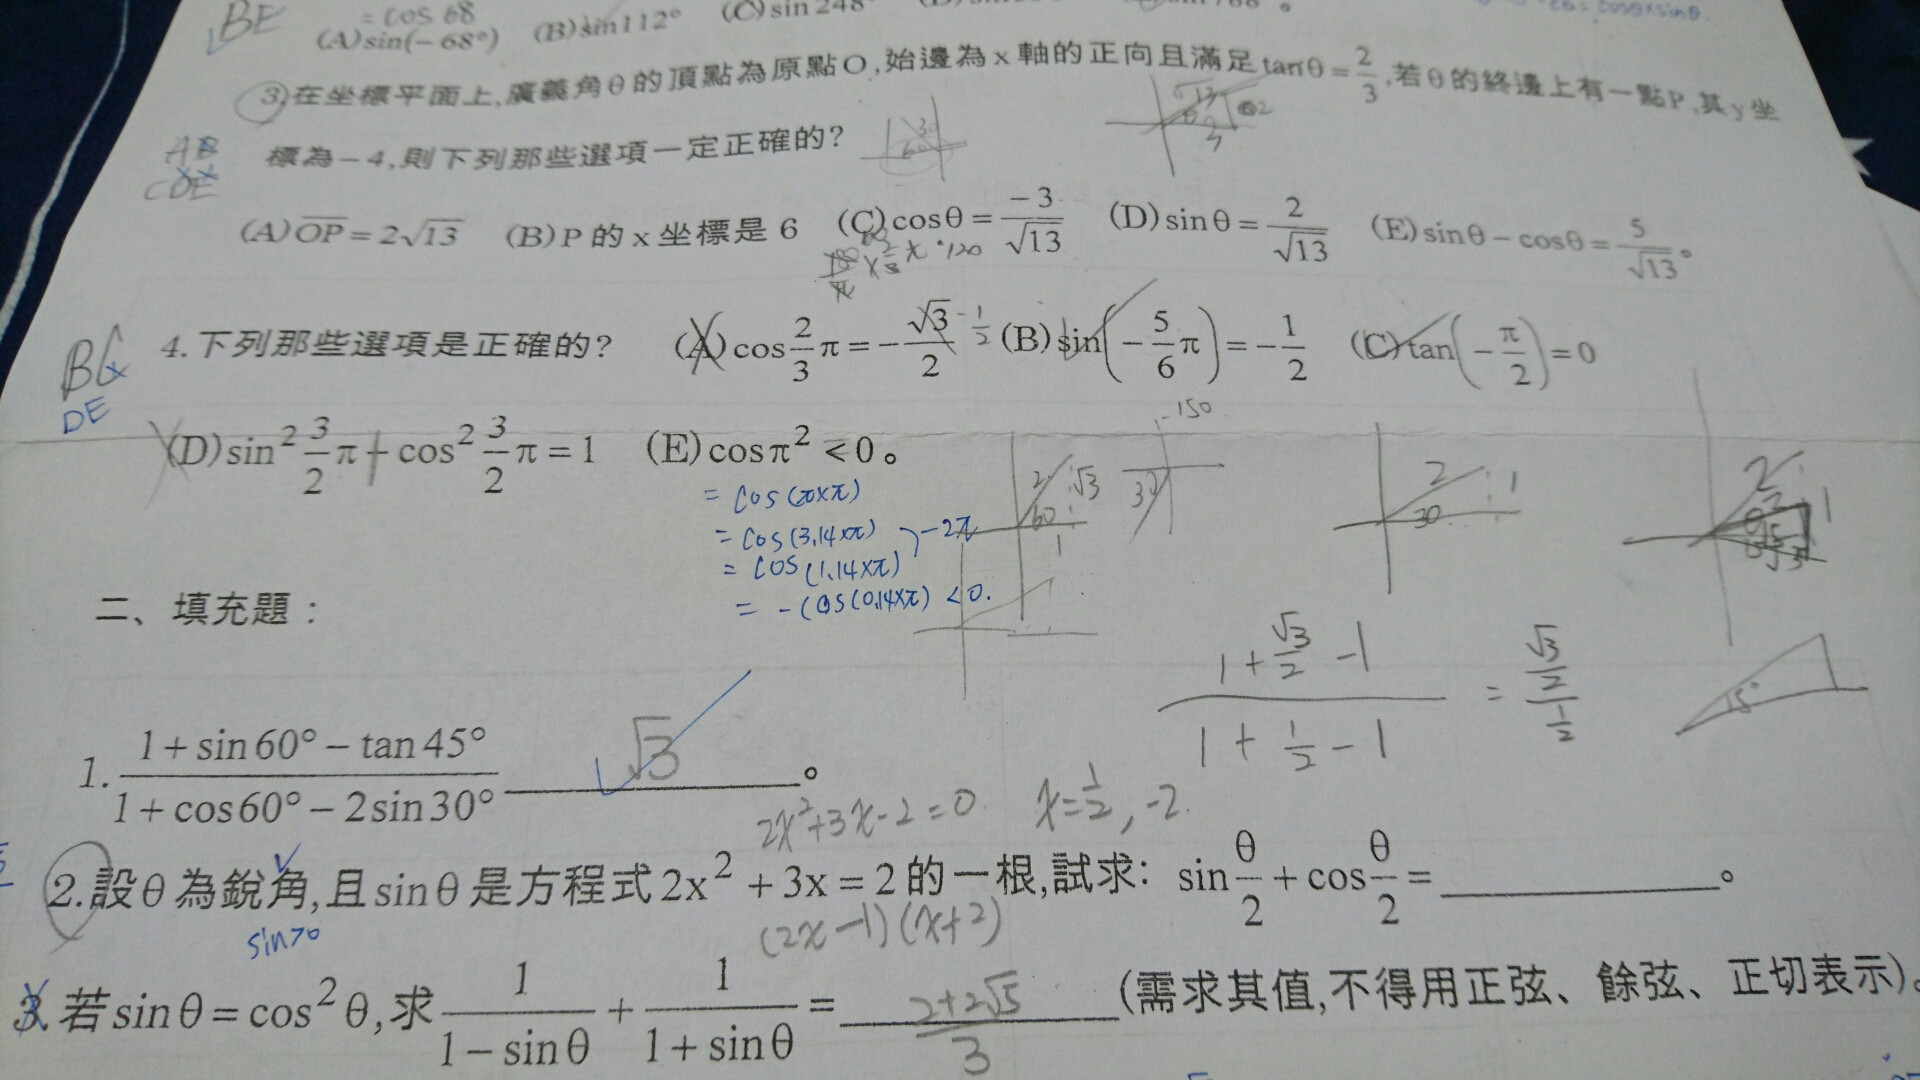 BE
= cos 68
(A)sin(-68°) (B)sin112° (C)sin248°
③在坐標平面上,廣義角θ的頂點為原點O,始邊為x軸的正向且滿足tanθ=2/3,若θ的終邊上有一點P,其y坐
標為-4,則下列那些選項一定正確的?
CDE
(A)OP=2√13 (B)P的x坐標是6 (C)cosθ=-3/√13 (D)sinθ=2/√13 (E)sinθ-cosθ=5/√13。
4.下列那些選項是正確的? (A)cos2/3π=-√3/2 -1/2 (B)sin(-5/6π)=-1/2 (C)tan(-π/2)=0
DE
-150
(D)sin²3/2π+cos²3/2π=1 (E)cosπ²<0。
2 √3 60 1
2 1 30
= cos(π×π)
= cos(3.14×π)
-2π
= cos(1.14×π)
= -cos(0.14×π) <0.
二、填充題:
1+√3/2-1 / 1+1/2-1 = √3/2 / 1/2
15°
1. 1+sin60°-tan45° / 1+cos60°-2sin30° √3 。
2x²+3x-2=0 x=1/2, -2.
2.設θ為銳角,且sinθ是方程式2x²+3x=2的一根,試求: sinθ/2+cosθ/2=。
sin>0
(2x-1)(x+2)
3.若sinθ=cos²θ,求1/1-sinθ+1/1+sinθ= 2+2√5/3 (需求其值,不得用正弦、餘弦、正切表示)。